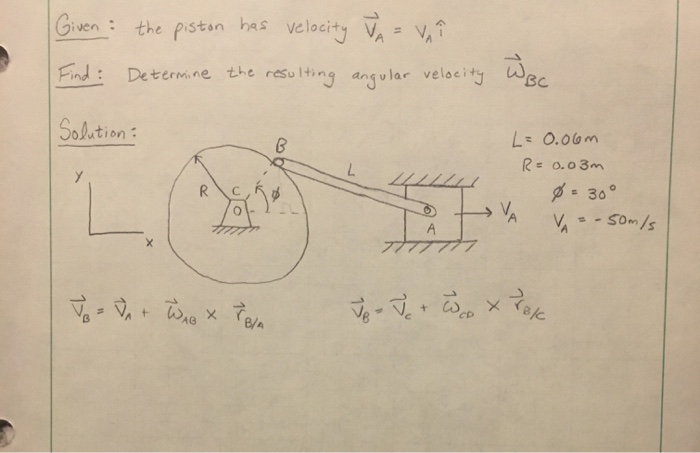 Given: the piston has velocity V⃗_A = V_A î
Find: Determine the resulting angular velocity ω⃗_BC
Solution:
L = 0.06m
R = 0.03m
ϕ = 30°
V_A = -50m/s
y
x
R
C
B
ϕ
L
A
V_A
V⃗_B = V⃗_A + ω⃗_AB × r⃗_B/A
V⃗_B = V⃗_C + ω⃗_CD × r⃗_B/C